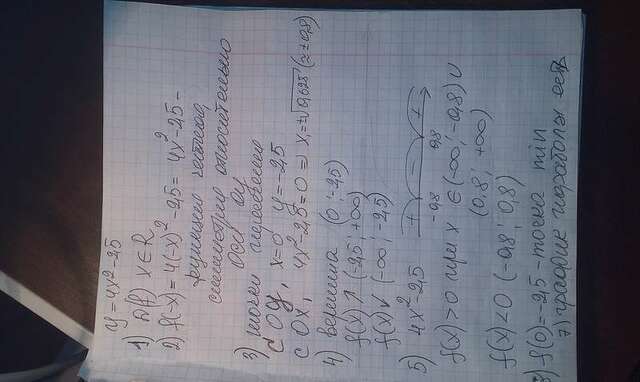 y = 4x² - 2,5
1) D(f) x ∈ R
2) f(-x) = 4(-x)² - 2,5 = 4x² - 2,5 -
функция четная,
симметрия относительно
оси оу
3) точки пересечения
с OY, x=0 y=-2,5
с OX, 4x²-2,5=0 ⇒ x₁=±√0,625 (≈±0,8)
4) вершина (0; -2,5)
f(x) ↑ (-2,5; +∞)
f(x) ↓ (-∞; -2,5)
5) 4x²-2,5 + - +
-0,8 0,8
f(x) > 0 при x ∈ (-∞; -0,8) ∪
(0,8; +∞)
f(x) < 0 (-0,8; 0,8)
f(0) = -2,5 - точка min
7) график парабола